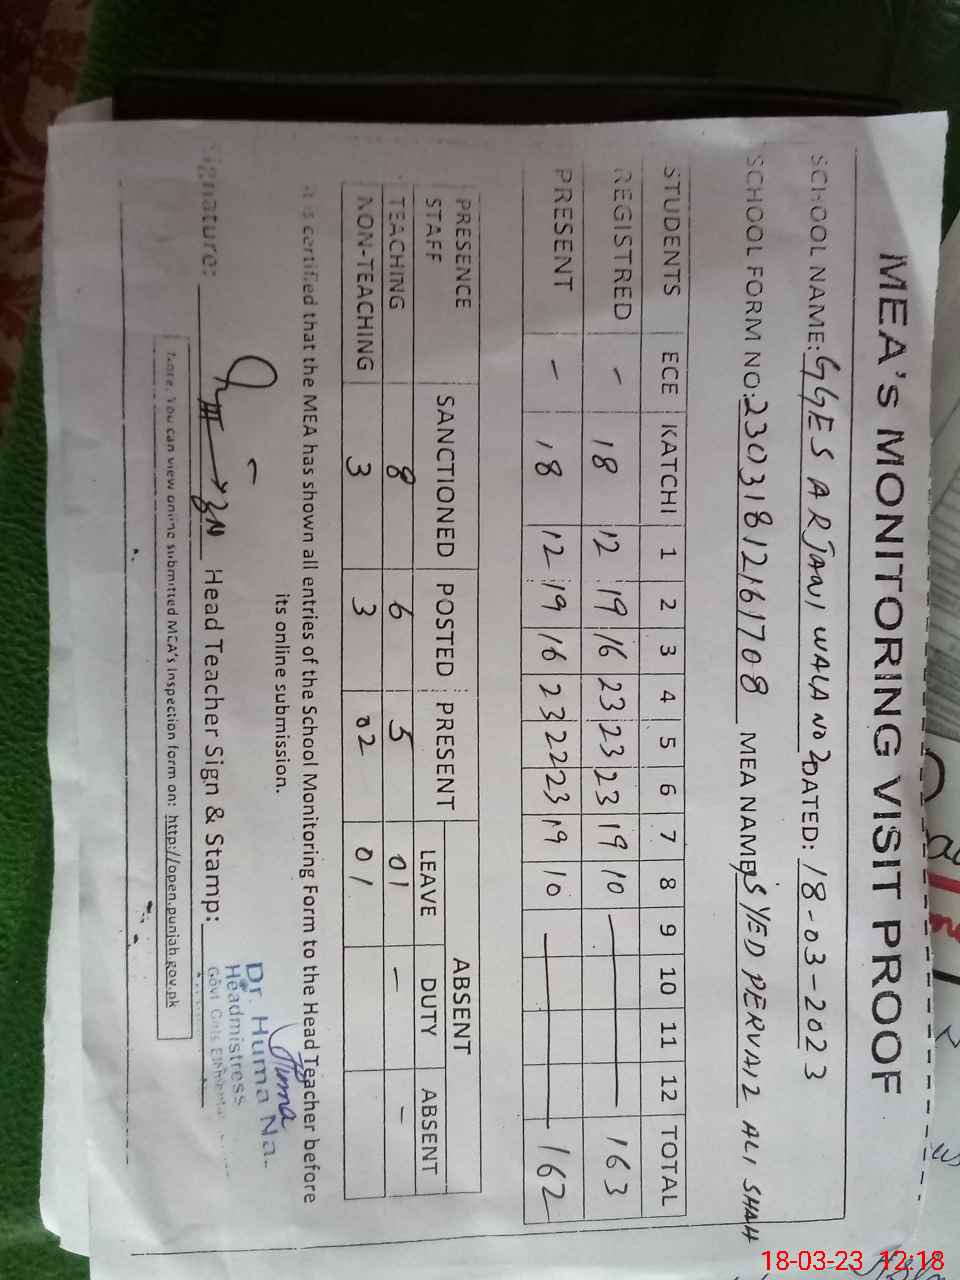 MEA'S MONITORING VISIT PROOF
SCHOOL NAME: GGES ARJANI WALA NO 2 DATED: 18-03-2023
SCHOOL FORM NO: 23031812161708 MEA NAME: SYED PERVAIZ ALI SHAH
STUDENTS ECE KATCHI 1 2 3 4 5 6 7 8 9 10 11 12 TOTAL
REGISTRED - 18 12 19 16 23 23 23 19 10 163
PRESENT - 18 12 19 16 23 22 23 19 10 162
PRESENCE STAFF SANCTIONED POSTED PRESENT ABSENT
LEAVE DUTY ABSENT
TEACHING 8 6 5 01 - -
NON-TEACHING 3 3 02 01
It is certified that the MEA has shown all entries of the School Monitoring Form to the Head Teacher before
its online submission.
Signature: Head Teacher Sign & Stamp:
Huma
Dr. Huma Na
Headmistress
Govt Girls Elementary
Note: You can view online submitted MEA's Inspection form on: http://open.punjab.gov.pk
18-03-23 12:18